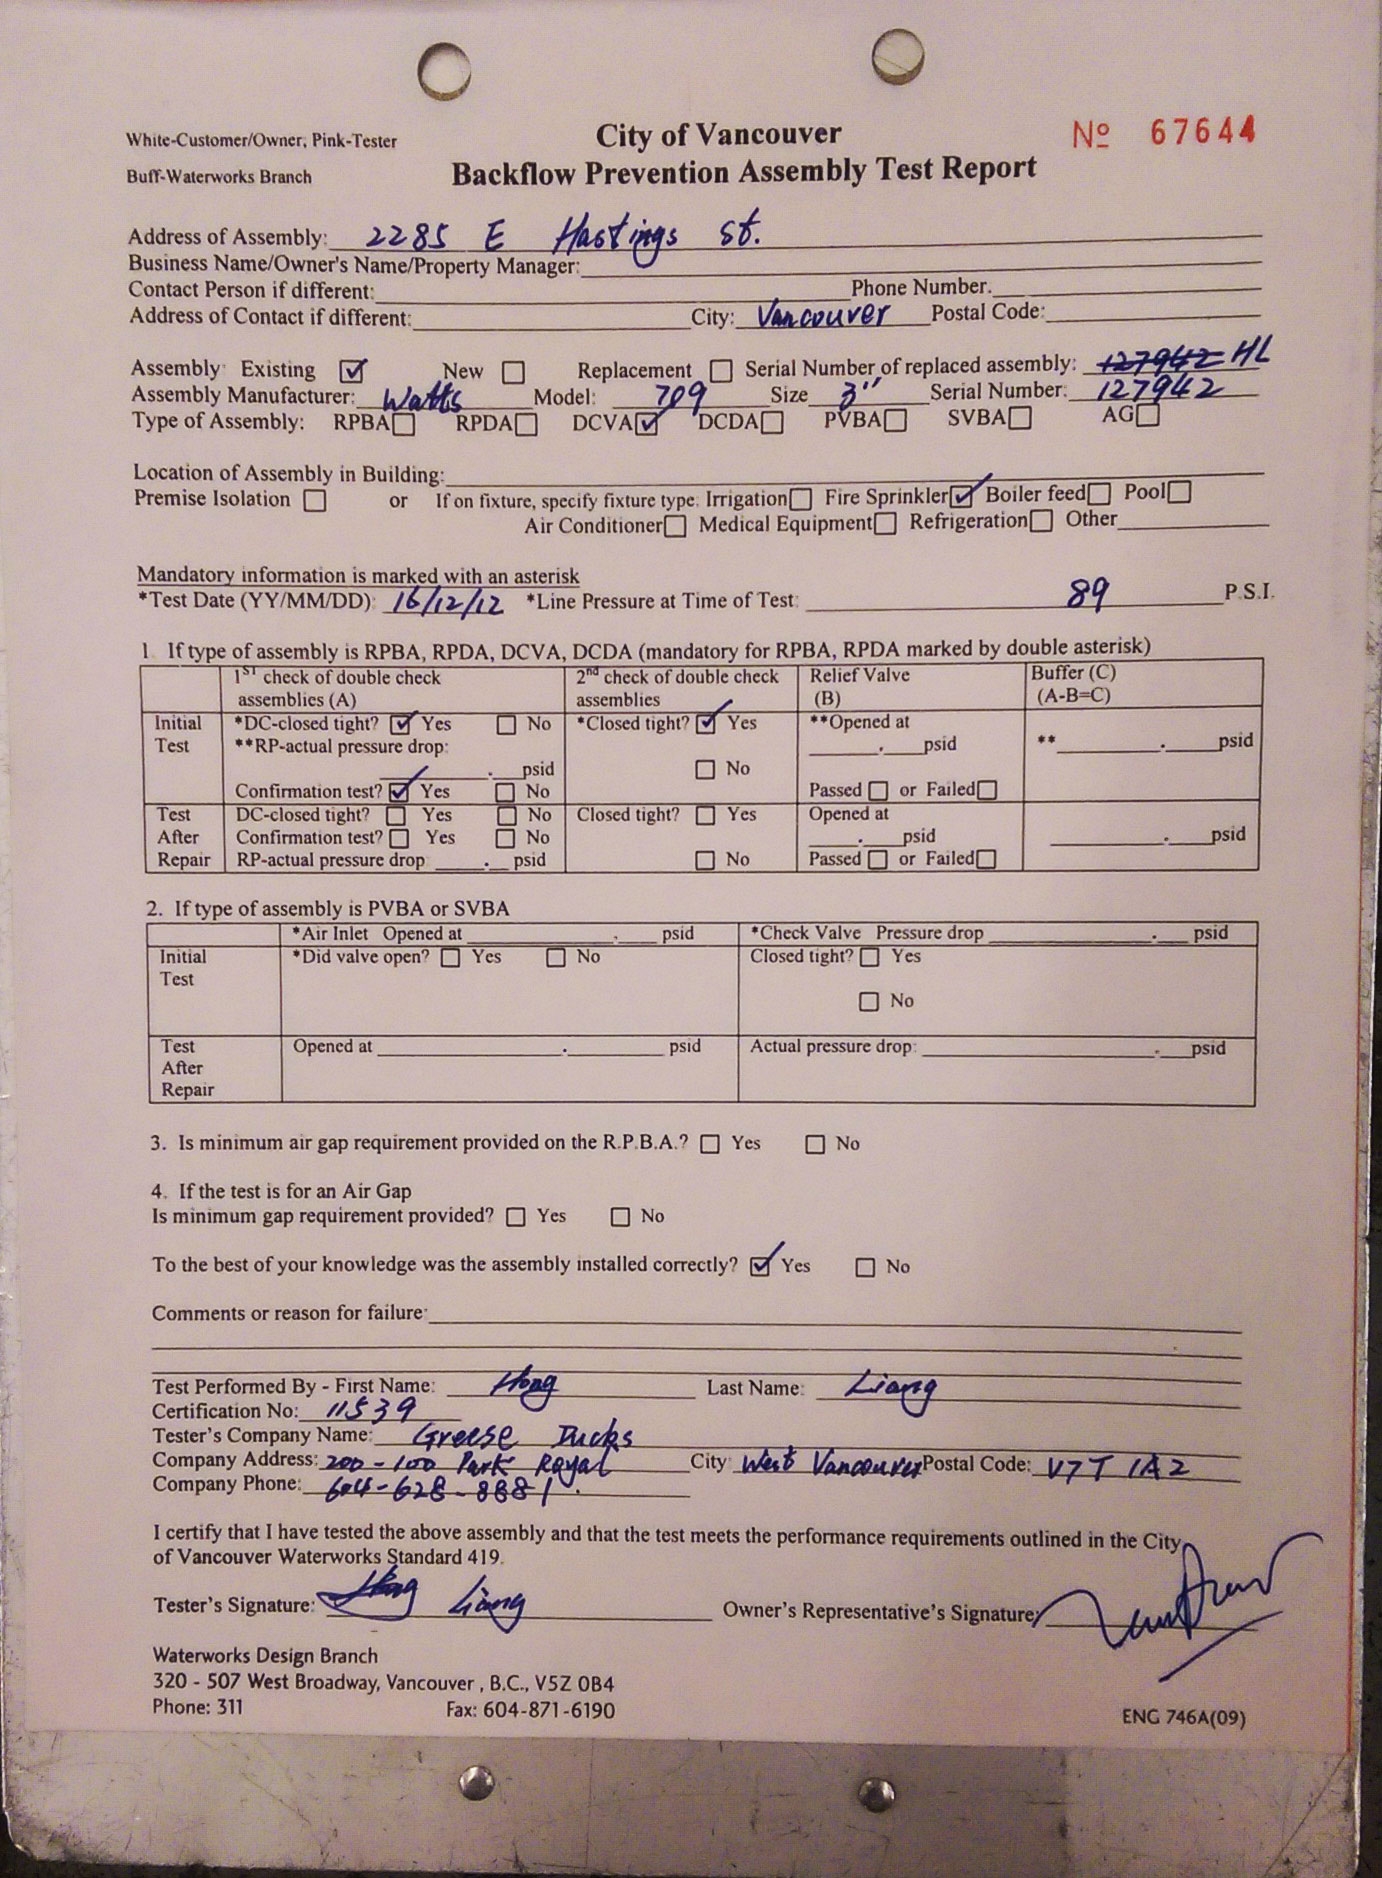 White-Customer/Owner, Pink-Tester
Buff-Waterworks Branch
City of Vancouver
Backflow Prevention Assembly Test Report
Nº 67644
Address of Assembly: 2285 E Hastings St.
Business Name/Owner's Name/Property Manager:
Contact Person if different: Phone Number.
Address of Contact if different: City: Vancouver Postal Code:
Assembly: Existing ☑ New ☐ Replacement ☐ Serial Number of replaced assembly: 127942 HL
Assembly Manufacturer: Watts Model: 709 Size 3" Serial Number: 127942
Type of Assembly: RPBA ☐ RPDA ☐ DCVA ☑ DCDA ☐ PVBA ☐ SVBA ☐ AG ☐
Location of Assembly in Building:
Premise Isolation ☐ or If on fixture, specify fixture type: Irrigation ☐ Fire Sprinkler ☑ Boiler feed ☐ Pool ☐
Air Conditioner ☐ Medical Equipment ☐ Refrigeration ☐ Other
Mandatory information is marked with an asterisk
*Test Date (YY/MM/DD): 16/12/12 *Line Pressure at Time of Test: 89 P.S.I.
1. If type of assembly is RPBA, RPDA, DCVA, DCDA (mandatory for RPBA, RPDA marked by double asterisk)
1ST check of double check assemblies (A)
2nd check of double check assemblies
Relief Valve (B)
Buffer (C) (A-B=C)
Initial Test
*DC-closed tight? ☑ Yes ☐ No
**RP-actual pressure drop:
____.__psid
Confirmation test? ☑ Yes ☐ No
*Closed tight? ☑ Yes
☐ No
**Opened at
____.__psid
Passed ☐ or Failed ☐
**____.__psid
Test After Repair
DC-closed tight? ☐ Yes ☐ No
Confirmation test? ☐ Yes ☐ No
RP-actual pressure drop ____.__ psid
Closed tight? ☐ Yes
☐ No
Opened at
____.__psid
Passed ☐ or Failed ☐
____.__psid
2. If type of assembly is PVBA or SVBA
*Air Inlet Opened at ____.__ psid
*Check Valve Pressure drop ____.__ psid
Initial Test
*Did valve open? ☐ Yes ☐ No
Closed tight? ☐ Yes
☐ No
Test After Repair
Opened at ____.__ psid
Actual pressure drop: ____.__psid
3. Is minimum air gap requirement provided on the R.P.B.A.? ☐ Yes ☐ No
4. If the test is for an Air Gap
Is minimum gap requirement provided? ☐ Yes ☐ No
To the best of your knowledge was the assembly installed correctly? ☑ Yes ☐ No
Comments or reason for failure:
Test Performed By - First Name: Hong Last Name: Liang
Certification No: 11539
Tester's Company Name: Greese Ducks
Company Address: 200-100 Park Royal City: West Vancouver Postal Code: V7T 1A2
Company Phone: 604-628-8881.
I certify that I have tested the above assembly and that the test meets the performance requirements outlined in the City
of Vancouver Waterworks Standard 419.
Tester's Signature: Hong Liang Owner's Representative's Signature:
Waterworks Design Branch
320 - 507 West Broadway, Vancouver , B.C., V5Z 0B4
Phone: 311 Fax: 604-871-6190
ENG 746A(09)